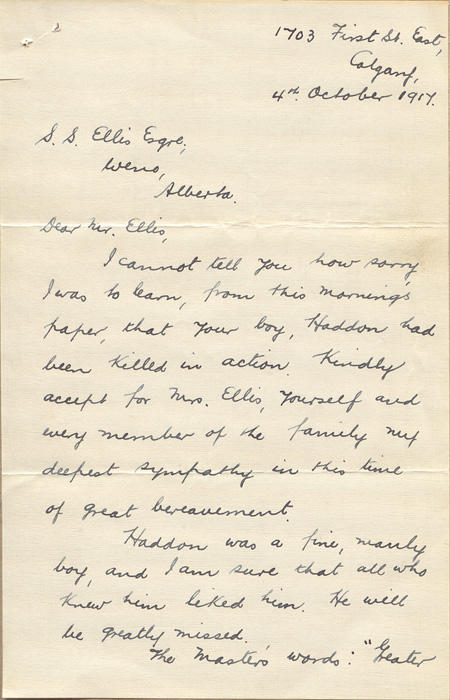 1703 First St. East,
Calgary,
4th October 1917.
S. S. Ellis Esqre,
Weno,
Alberta.
Dear Mr. Ellis,
I cannot tell you how sorry
I was to learn, from this morning's
paper, that your boy, Haddon had
been killed in action. Kindly
accept for Mrs. Ellis, yourself and
every member of the family my
deepest sympathy in this time
of great bereavement.
Haddon was a fine, manly
boy, and I am sure that all who
knew him liked him. He will
be greatly missed.
The Master's words: "Greater